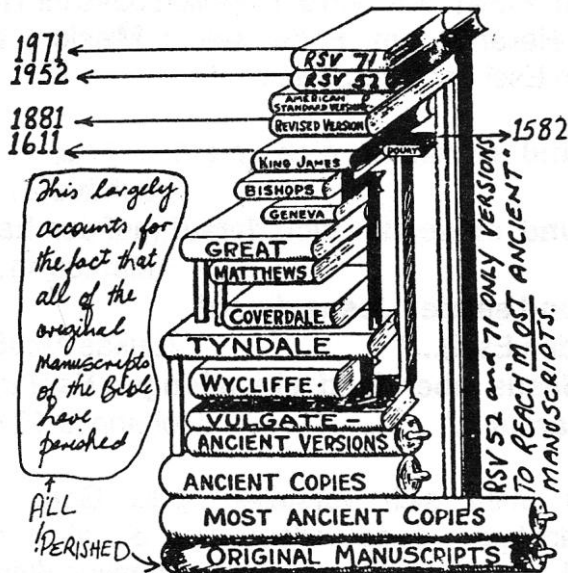 1971
1952
1881
1611
RSV 71
RSV 52
AMERICAN
STANDARD VERSION
REVISED VERSION
1582
KING JAMES
DOUAY
BISHOPS
GENEVA
GREAT
MATTHEWS
COVERDALE
TYNDALE
WYCLIFFE.
VULGATE-
ANCIENT VERSIONS
ANCIENT COPIES
MOST ANCIENT COPIES
ORIGINAL MANUSCRIPTS
This largely
accounts for
the fact that
all of the
original
Manuscripts
of the Bible
have
perished
ALL
!PERISHED
RSV 52 and 71 ONLY VERSIONS
TO REACH "MOST ANCIENT"
MANUSCRIPTS.